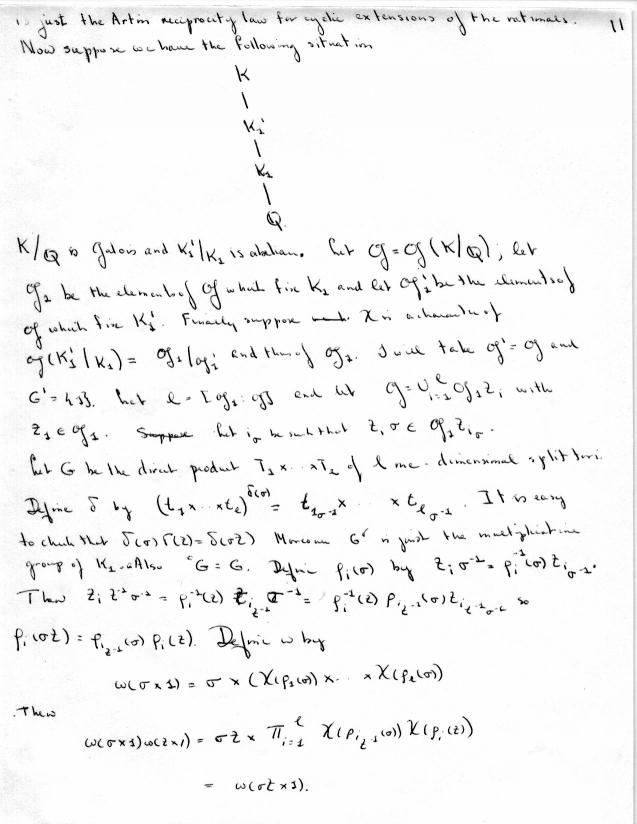 is just the Artin reciprocity law for cyclic extensions of the rationals. 11
Now suppose we have the following situation
K
|
K₁'
|
K₁
|
Q
K/Q is Galois and K₁'/K₁ is abelian. Let 𝔤 = 𝔤(K/Q); let
𝔤₁ be the elements of 𝔤 which fix K₁ and let 𝔤₁' be the elements of
𝔤 which fix K₁'. Finally suppose χ is a character of
𝔤(K₁'/K₁) = 𝔤₁/𝔤₁' and thus of 𝔤₁. I will take 𝔤' = 𝔤 and
G' = {1}. Let l = [𝔤₁:𝔤] and let 𝔤 = ∪ᵢ₌₁ˡ 𝔤₁zᵢ with
z₁ ∈ 𝔤₁. Let iσ be such that zᵢσ ∈ 𝔤₁z_{iσ}.
Let G be the direct product T₁ x .. x T_l of l one-dimensional split tori.
Define δ by (t₁ x .. x t_l)^{δ(σ)} = t_{1σ⁻¹} x .. x t_{lσ⁻¹}. It is easy
to check that δ(σ)δ(τ) = δ(στ) Moreover G^δ is just the multiplicative
group of K₁. Also ᶜG = G. Define ρᵢ(σ) by zᵢσ⁻¹ = ρᵢ⁻¹(σ)z_{iσ⁻¹}.
Then zᵢτ⁻¹σ⁻¹ = ρᵢ⁻¹(τ) z_{iτ⁻¹}σ⁻¹ = ρᵢ⁻¹(τ) ρ_{iτ⁻¹}(σ) z_{iτ⁻¹σ⁻¹} so
ρᵢ(στ) = ρ_{iτ⁻¹}(σ) ρᵢ(τ). Define ω by
ω(σ x 1) = σ x (χ(ρ₁(σ)) x .. x χ(ρ_l(σ))
Then
ω(σ x 1)ω(τ x 1) = στ x Πᵢ₌₁ˡ χ(ρ_{iτ⁻¹}(σ)) χ(ρᵢ(τ))
= ω(στ x 1).